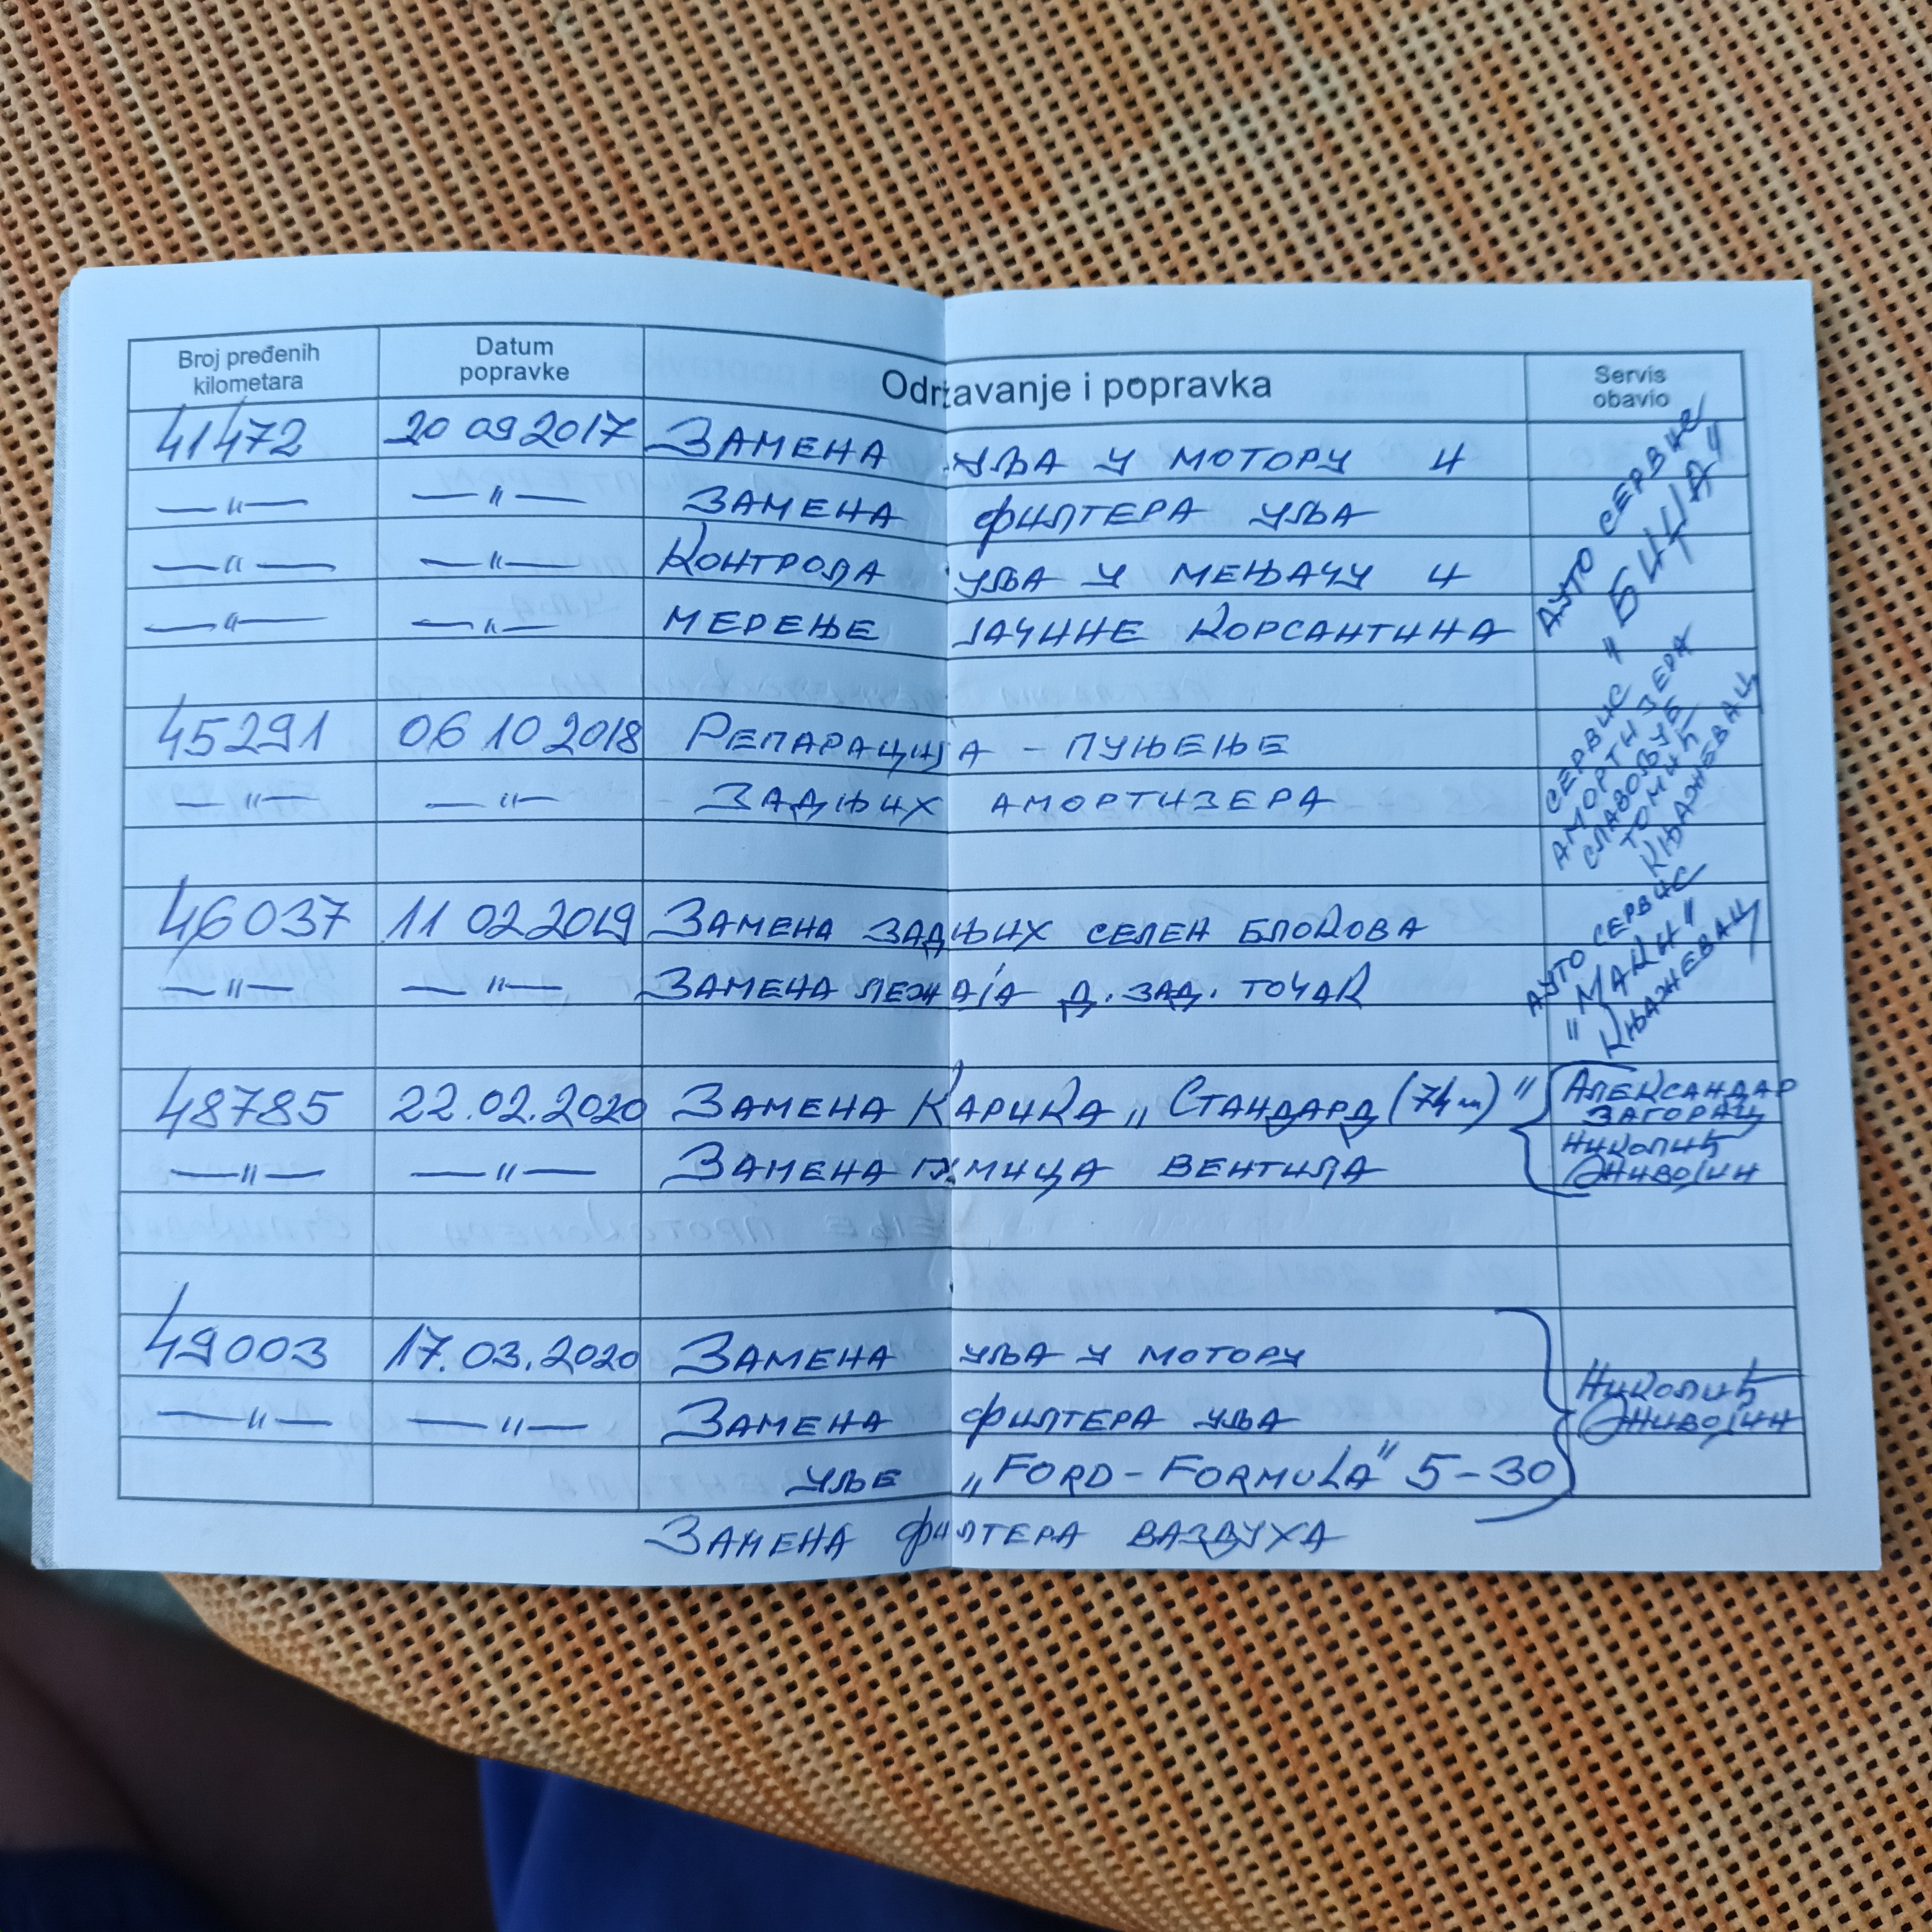 Broj pređenih kilometara Datum popravke Održavanje i popravka Servis obavio
41472 20 09 2017 ЗАМЕНА УЉА У МОТОРУ И
—"— —"— ЗАМЕНА ФИЛТЕРА УЉА
—"— —"— КОНТРОЛА УЉА У МЕЊАЧУ И
—"— —"— МЕРЕЊЕ ЈАЧИНЕ КОРСАНТИНА
АУТО СЕРВИС
"БИЦА"
45291 06 10 2018 РЕПАРАЦИЈА - ПУЊЕЊЕ
—"— —"— ЗАДЊИХ АМОРТИЗЕРА
СЕРВИС
АМОРТИЗЕРА
СЛАВОЉУБ
ТОМИЋ
КЊАЖЕВАЦ
46037 11 02 2019 ЗАМЕНА ЗАДЊИХ СЕЛЕН БЛОКОВА
—"— —"— ЗАМЕНА ЛЕЖАЈА Д. ЗАД. ТОЧАК
АУТО СЕРВИС
"МАКИ"
КЊАЖЕВАЦ
48785 22.02.2020 ЗАМЕНА КАРИКА „СТАНДАРД (74m)" АЛЕКСАНДАР
ЗАГОРАЦ
—"— —"— ЗАМЕНА ГУМИЦА ВЕНТИЛА НИКОЛИЋ
ЖИВОЈИН
49003 17.03.2020 ЗАМЕНА УЉА У МОТОРУ
—"— —"— ЗАМЕНА ФИЛТЕРА УЉА НИКОЛИЋ
ЖИВОЈИН
УЉЕ „FORD-FORMULA" 5-30
ЗАМЕНА ФИЛТЕРА ВАЗДУХА